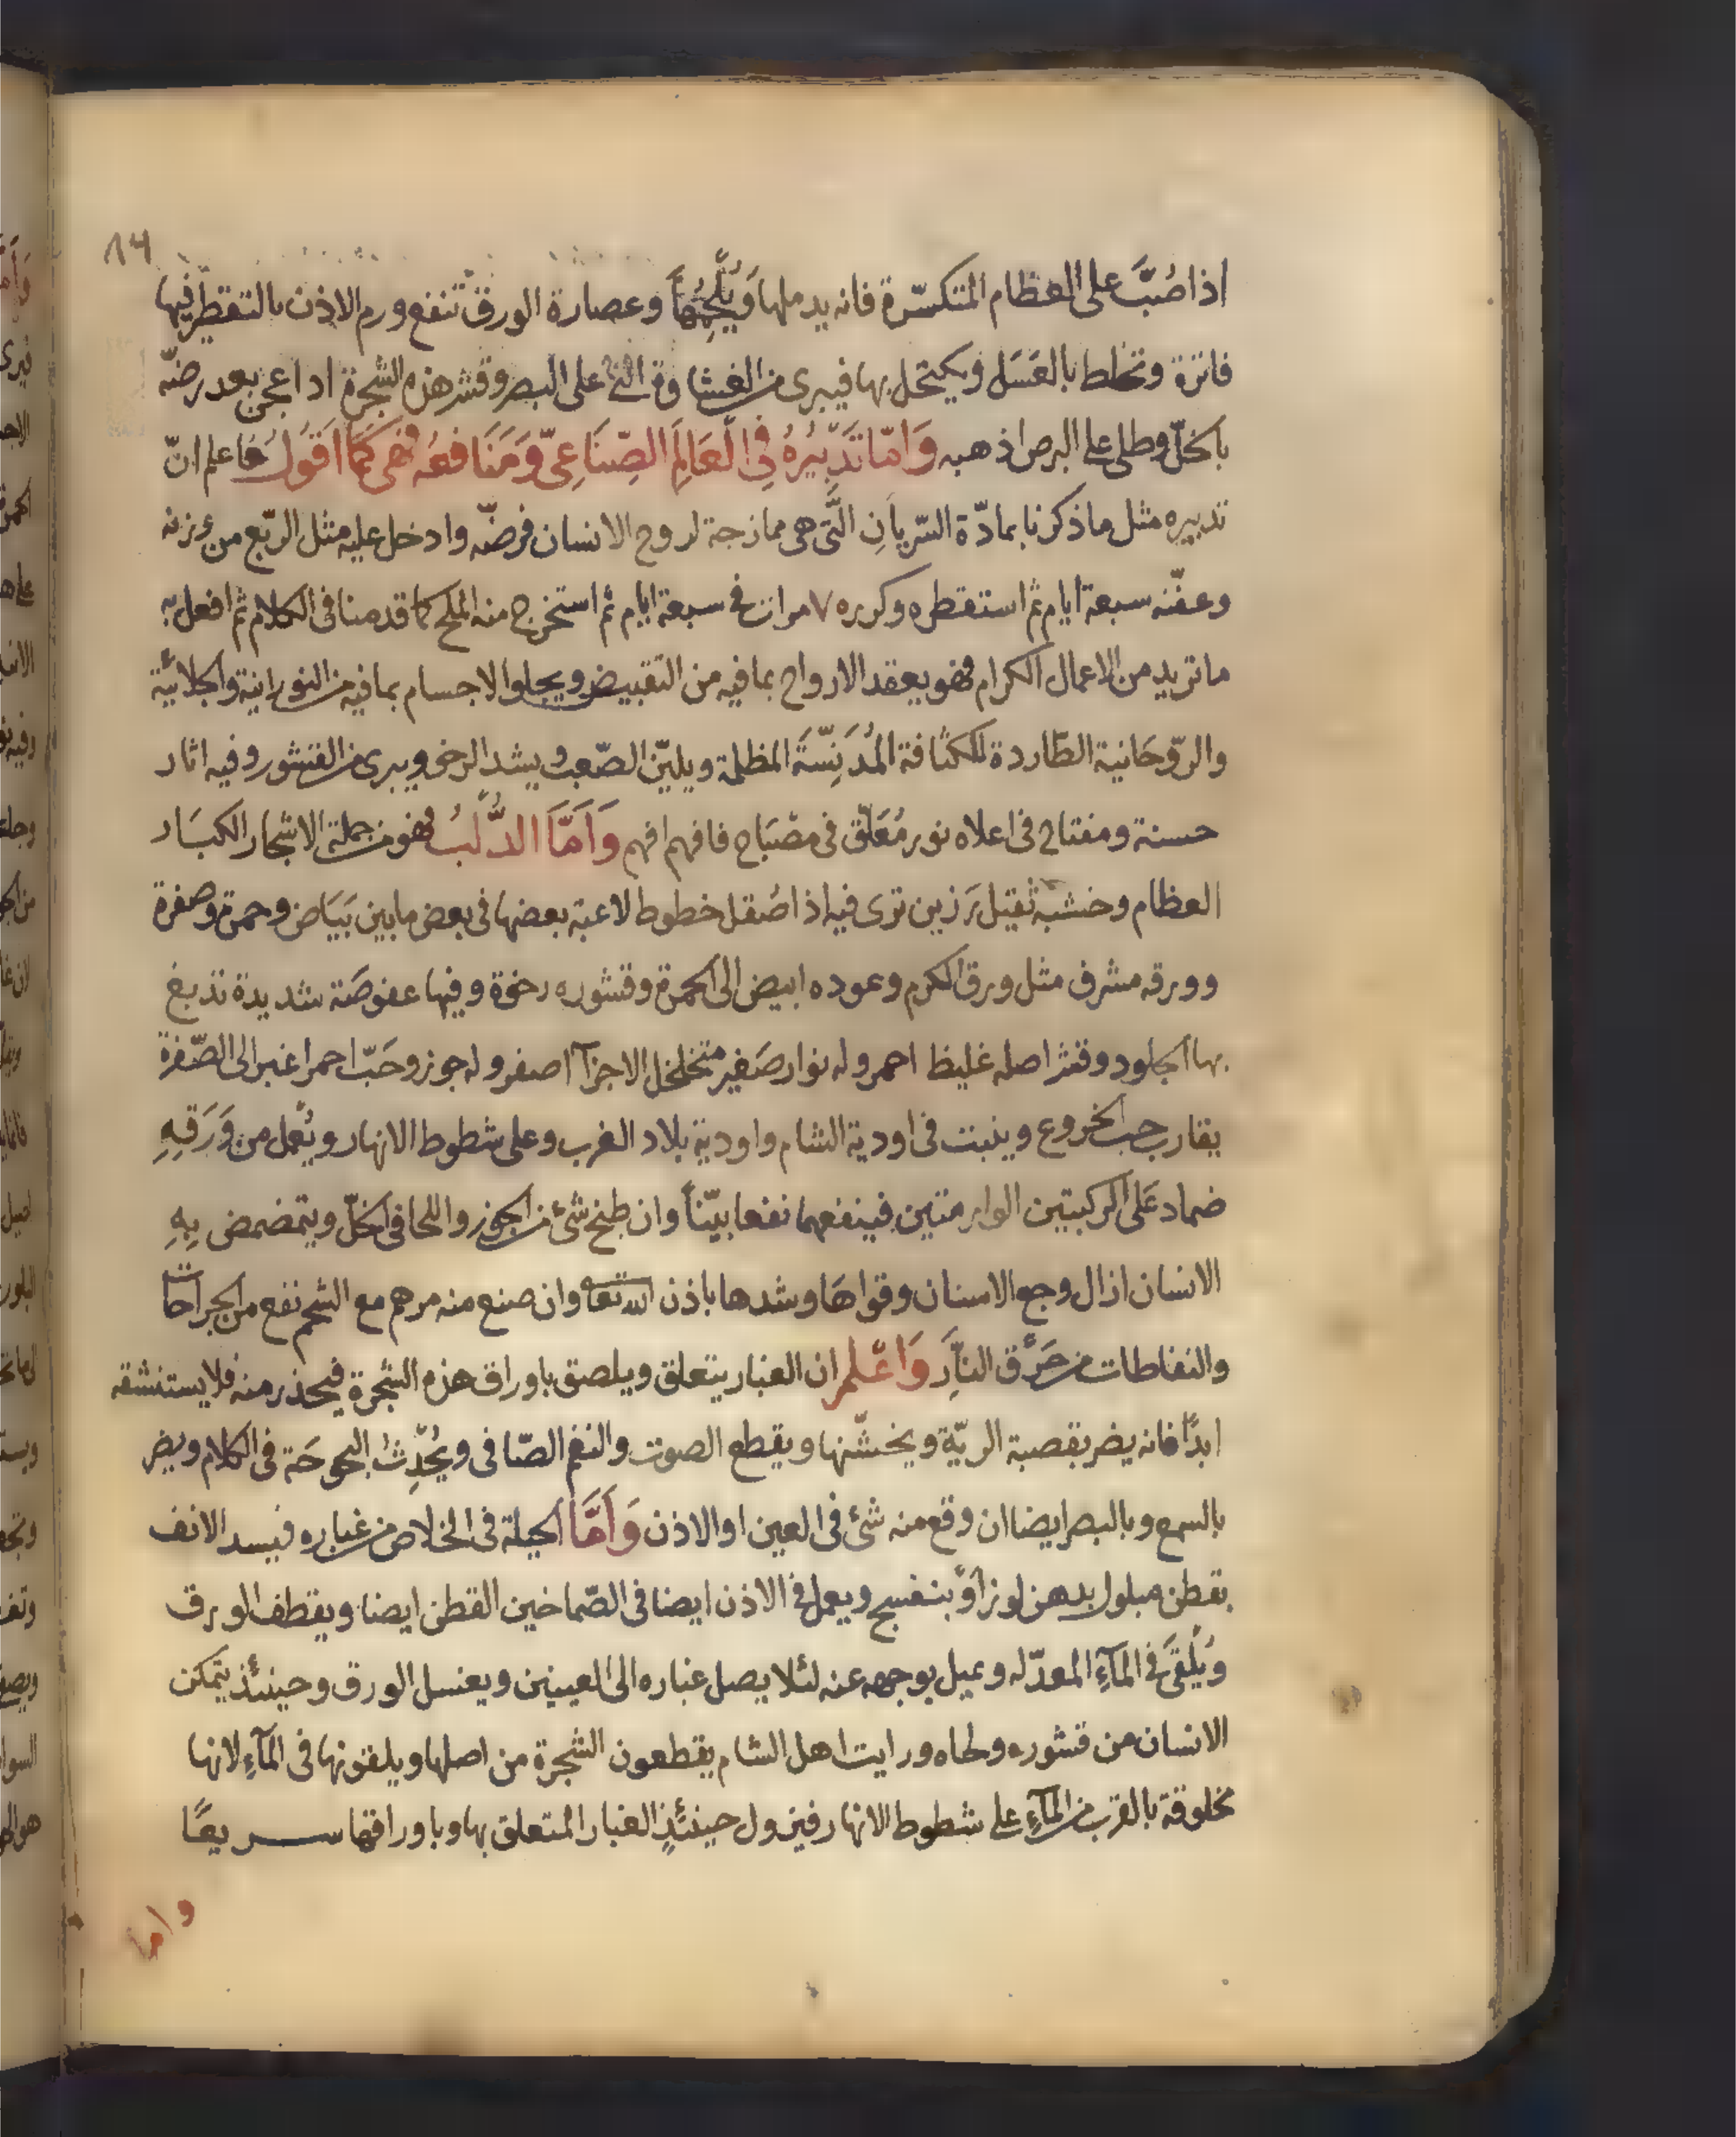 ١٨٩
اذا صُبَّ على العظام المتكسّرة فانه يدملها وَيُلْحِمُهَا وعصارة الورق تنفع ورم الاذن بالتقطير فيها
فاترة وتخلط بالعَسَل ويكتحل بها فيبرى من الغشا على البصر وقشر هذه الشجرة اذا عجن بعد رضّه
بالخلّ وطلى على البرص اذهبه وَامّا تَدْبِيْرُهُ فِي الْعَالَمِ الصِّنَاعِىّ وَمَنَافعُه فهى كَمَا اَقُولُ فاعلم انّ
تدبيره مثل ما ذكرنا بمادّة السّريانِ الّتى هى ممازجة لروح الانسان فرضّه وادخل عليه مثل الرّبع من وزنه
وعفّنه سبعة ايام ثم استقطره وكرره ٧ مرات فى سبعة ايام ثم استخرج منه الملح كما قدمنا فى الكلام ثم افعل به
ما تريد من الاعمال الكرام فهو يعقد الارواح بما فيه من التقبيض ويجلوا الاجسام بما فيه من النورانية والجلائيّة
والرّوحَانية الطّاردة للكثافة المُدَنِّسَةَ المظلمة ويليّن الصّعب ويشد الرخو ويبرى من القشور وفيه اثار
حسنة ومفتاح فى اعلاه نور مُعَلّق فى مصْبَاح فافهم افهم وَاَمَّا الدُّلْبُ فهو من جملة الاشجار الكبَار
العظام وخشبه ثقيل رَزين ترى فيه اذا صُقل خطوط لاعبة بعضها فى بعض ما بين بَيَاض وحمرة وصفرة
وورقه مشرف مثل ورق الكرم وعوده ابيض الى الحمرة وقشوره رخوة وفيها عفوصَة شديدة تدبغ
بها الجلود وقشر اصله غليظ احمر وله نوار صَغير متخلخل الاجزآ اصفر وله جوز وحَبّ احمر اغبر الى الصّفرة
يقارب حب الخروع وينبت فى اودية الشام واودية بلاد الغرب وعلى شطوط الانهار ويُعْمل من وَرَقِهِ
ضماد عَلى الركبتين الوارمتين فينفعهما نفعا بيّناً وان طبخ شئ من الجوز واللحا فى الخلّ ويتمضمض بِهِ
الانسان ازال وجع الاسنان وقواهَا وشدها باذن الله تعا وان صنع منه مرهم مع الشحم نفع من الجراحات
والنفاطات من حَرْق النَّارِ وَاعْلم ان الغبار يتعلق ويلصق باوراق هذه الشجرة فيحذر منه فلا يستنشقه
ابدًا فانه يضر بقصبة الريّة ويخشّنها ويقطع الصوت والنغم الصّافى ويُحْدِثُ البحوحَة فى الكلام ويضر
بالسمع وبالبصر ايضا ان وقع منه شئ فى العين او الاذن وَاَمَّا الحيلة فى الخلاص من غباره فيسد الانف
بقطن مبلول بدهن لوز اَوْ بنفسج ويعمل فى الاذن ايضا فى الصّماخين القطن ايضا ويقطف الورق
وَيُلْقَىَ فى المآءِ المعدّ له ويميل بوجهه عنه لئلا يصل غباره الى العينين ويغسل الورق وحينئذ يتمكن
الانسان من قشوره ولحاه ورايت اهل الشام يقطعون الشجرة من اصلها ويلقونها فى المآءِ لانها
مخلوقة بالقرب من المآءِ على شطوط الانهار فيزول حينئذٍ الغبار المتعلق بها وباوراقها سريعًا
واما